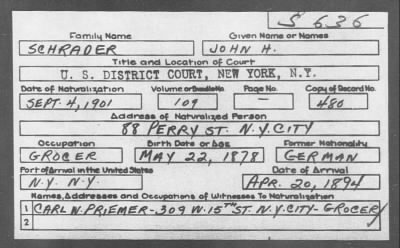 S 636
Family Name Given Name or Names
SCHRADER JOHN H.
Title and Location of Court
U. S. DISTRICT COURT, NEW YORK, N.Y.
Date of Naturalization Volume or Bundle No. Page No. Copy of Record No.
SEPT. 4, 1901 109 — 480
Address of Naturalized Person
88 PERRY ST. N.Y. CITY
Occupation Birth Date or Age Former Nationality
GROCER MAY 22, 1878 GERMAN
Port of Arrival in the United States Date of Arrival
N.Y. N.Y. APR. 20, 1894
Names, Addresses and Occupations of Witnesses To Naturalization
1 CARL N. PRIEMER-309 W. 15TH ST. N.Y. CITY-GROCER
2